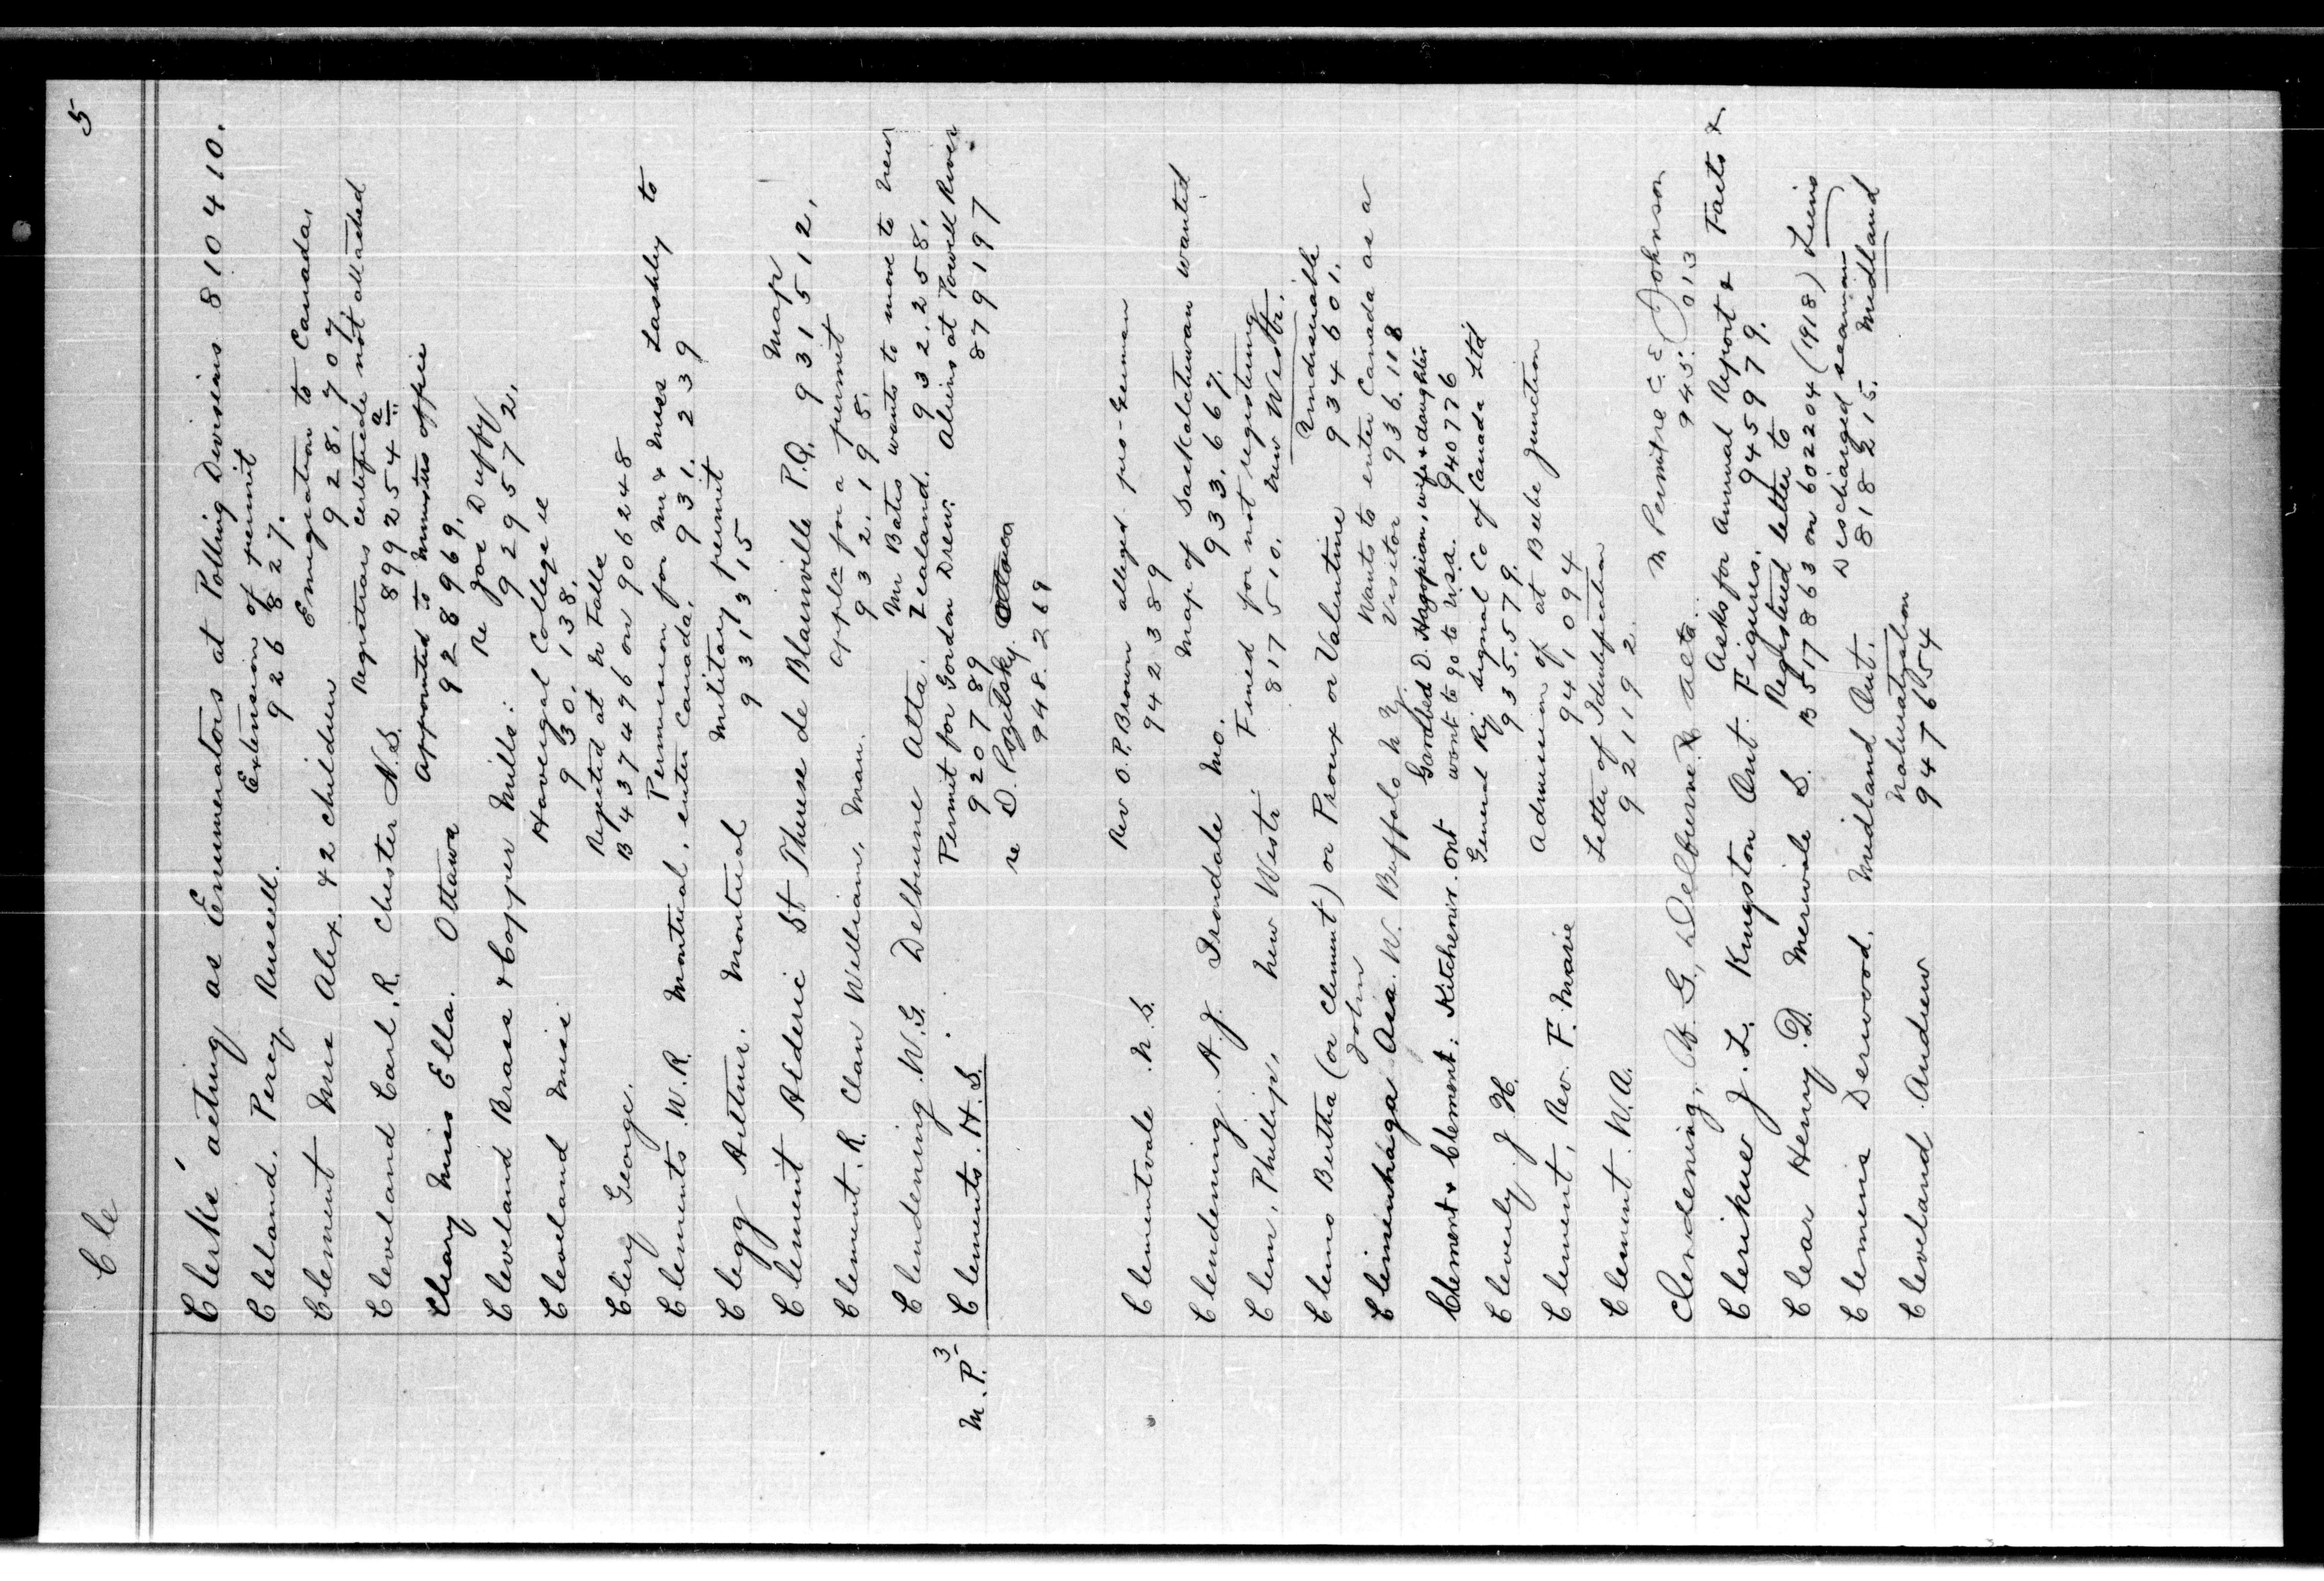 Cle
5
Clerks' acting as Enumerators at Polling Divisions 810410.
Cleland. Percy Russell. Extension of permit
926827.
Clement Mrs Alex. & 2 children Emigration to Canada,
928,707,
Cleveland Carl, R. Chester N.S. Registrars certificate not attached
899254 a
Cleary Miss Ella. Ottawa Appointed to Ministers office
928969,
Cleveland Brass & Copper Mills: Re Joe Duffy
929572,
Cleveland Miss Havergal College
930,138,
Clery George. Rejected at N Falls
B 437496 on 906248
Clements W.R. Montreal, Permission for Mr & Miss Lashley to
enter Canada, 931.239
Clegg Arthur. Montreal Military permit
931315
Clement Alderic St Therese de Blainville P.Q. Map
931512,
Clement. R. Clan William, Man. appln for a permit
932,195,
Clendening. W.G. Delburne Alta. Mr Bates wants to move to New
Zealand. 932,258,
M.P. 3 Clements. H.S. Permit for Gordon Drew. Aliens at Powell River
920789 879197
re D. Pozitsky
948.269
Clementvale N.S. Rev O.P. Brown alleged pro-German
942389
Clendenning A.J. Irondale Mo. Map of Saskatchewan wanted
933,667.
Clem, Phillip, New Westr. Fined for not registering
817510. New Westr.
Clems Bertha (or Clement) or Proux or Valentine Undesirable
934601.
John
Asa. W. Buffalo N.Y. Wants to enter Canada as a
Visitor 936.118
Clement & Clement: Kitchener. Ont Garabed D. Hagopian, wife & daughter
want to go to U.S.A. 940776
Cleverly J H. General Ry Signal Co of Canada Ltd
935,579.
Clement, Rev. F. Marie Admission of at Beebe Junction
941094
Clement. W.A. Letter of Identification
921192
Clendening, W. G., Delburne Alta. C. E. Johnson
945.013
Clerihue J. L. Kingston Ont. Asks for Annual Report & Facts &
Figures. 945979.
Clear Henry. D. Merivale S. Registered letter to
B 517863 on 602204 (1918)
Clemens Derwood. Midland Ont. Discharged seaman
818215. Midland
Cleveland Andrew Naturalization
947654